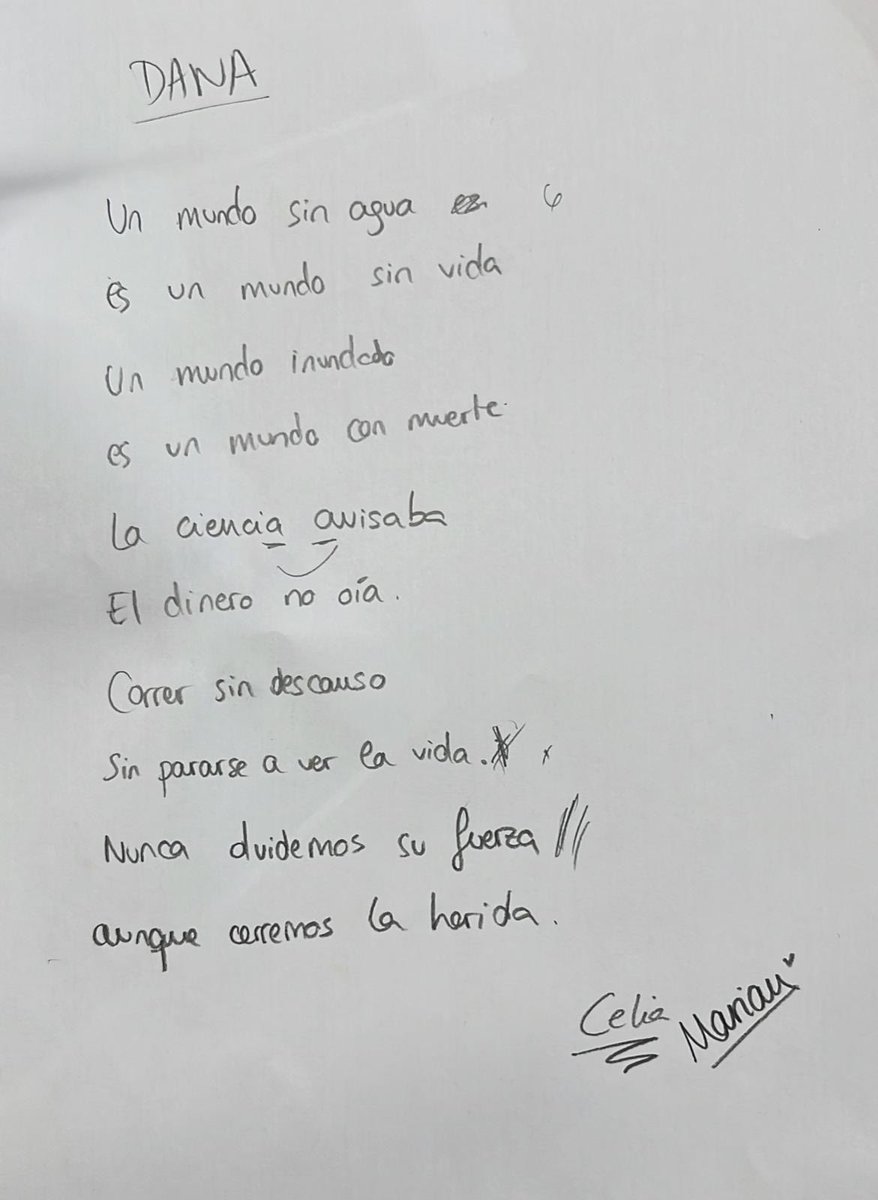 DANA
Un mundo sin agua 6
es un mundo sin vida
Un mundo inundado
es un mundo con muerte.
La ciencia avisaba
El dinero no oía.
Correr sin descanso
Sin pararse a ver la vida. x
Nunca olvidemos su fuerza
aunque cerremos la herida.
Celia Marian